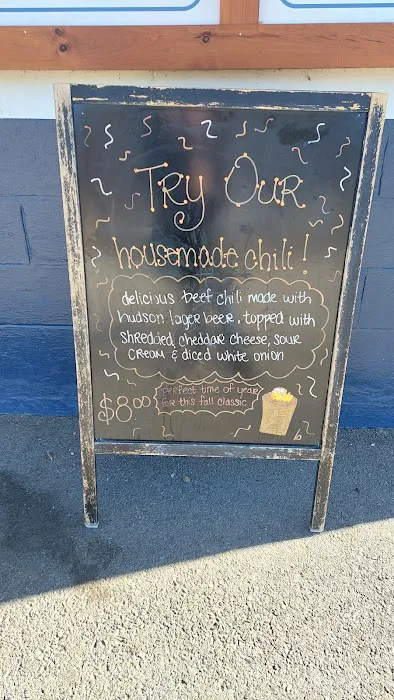 Try Our
housemade chili!
delicious beef chili made with
hudson lager beer, topped with
shredded cheddar cheese, sour
cream & diced white onion
$8.00
perfect time of year
for this fall classic